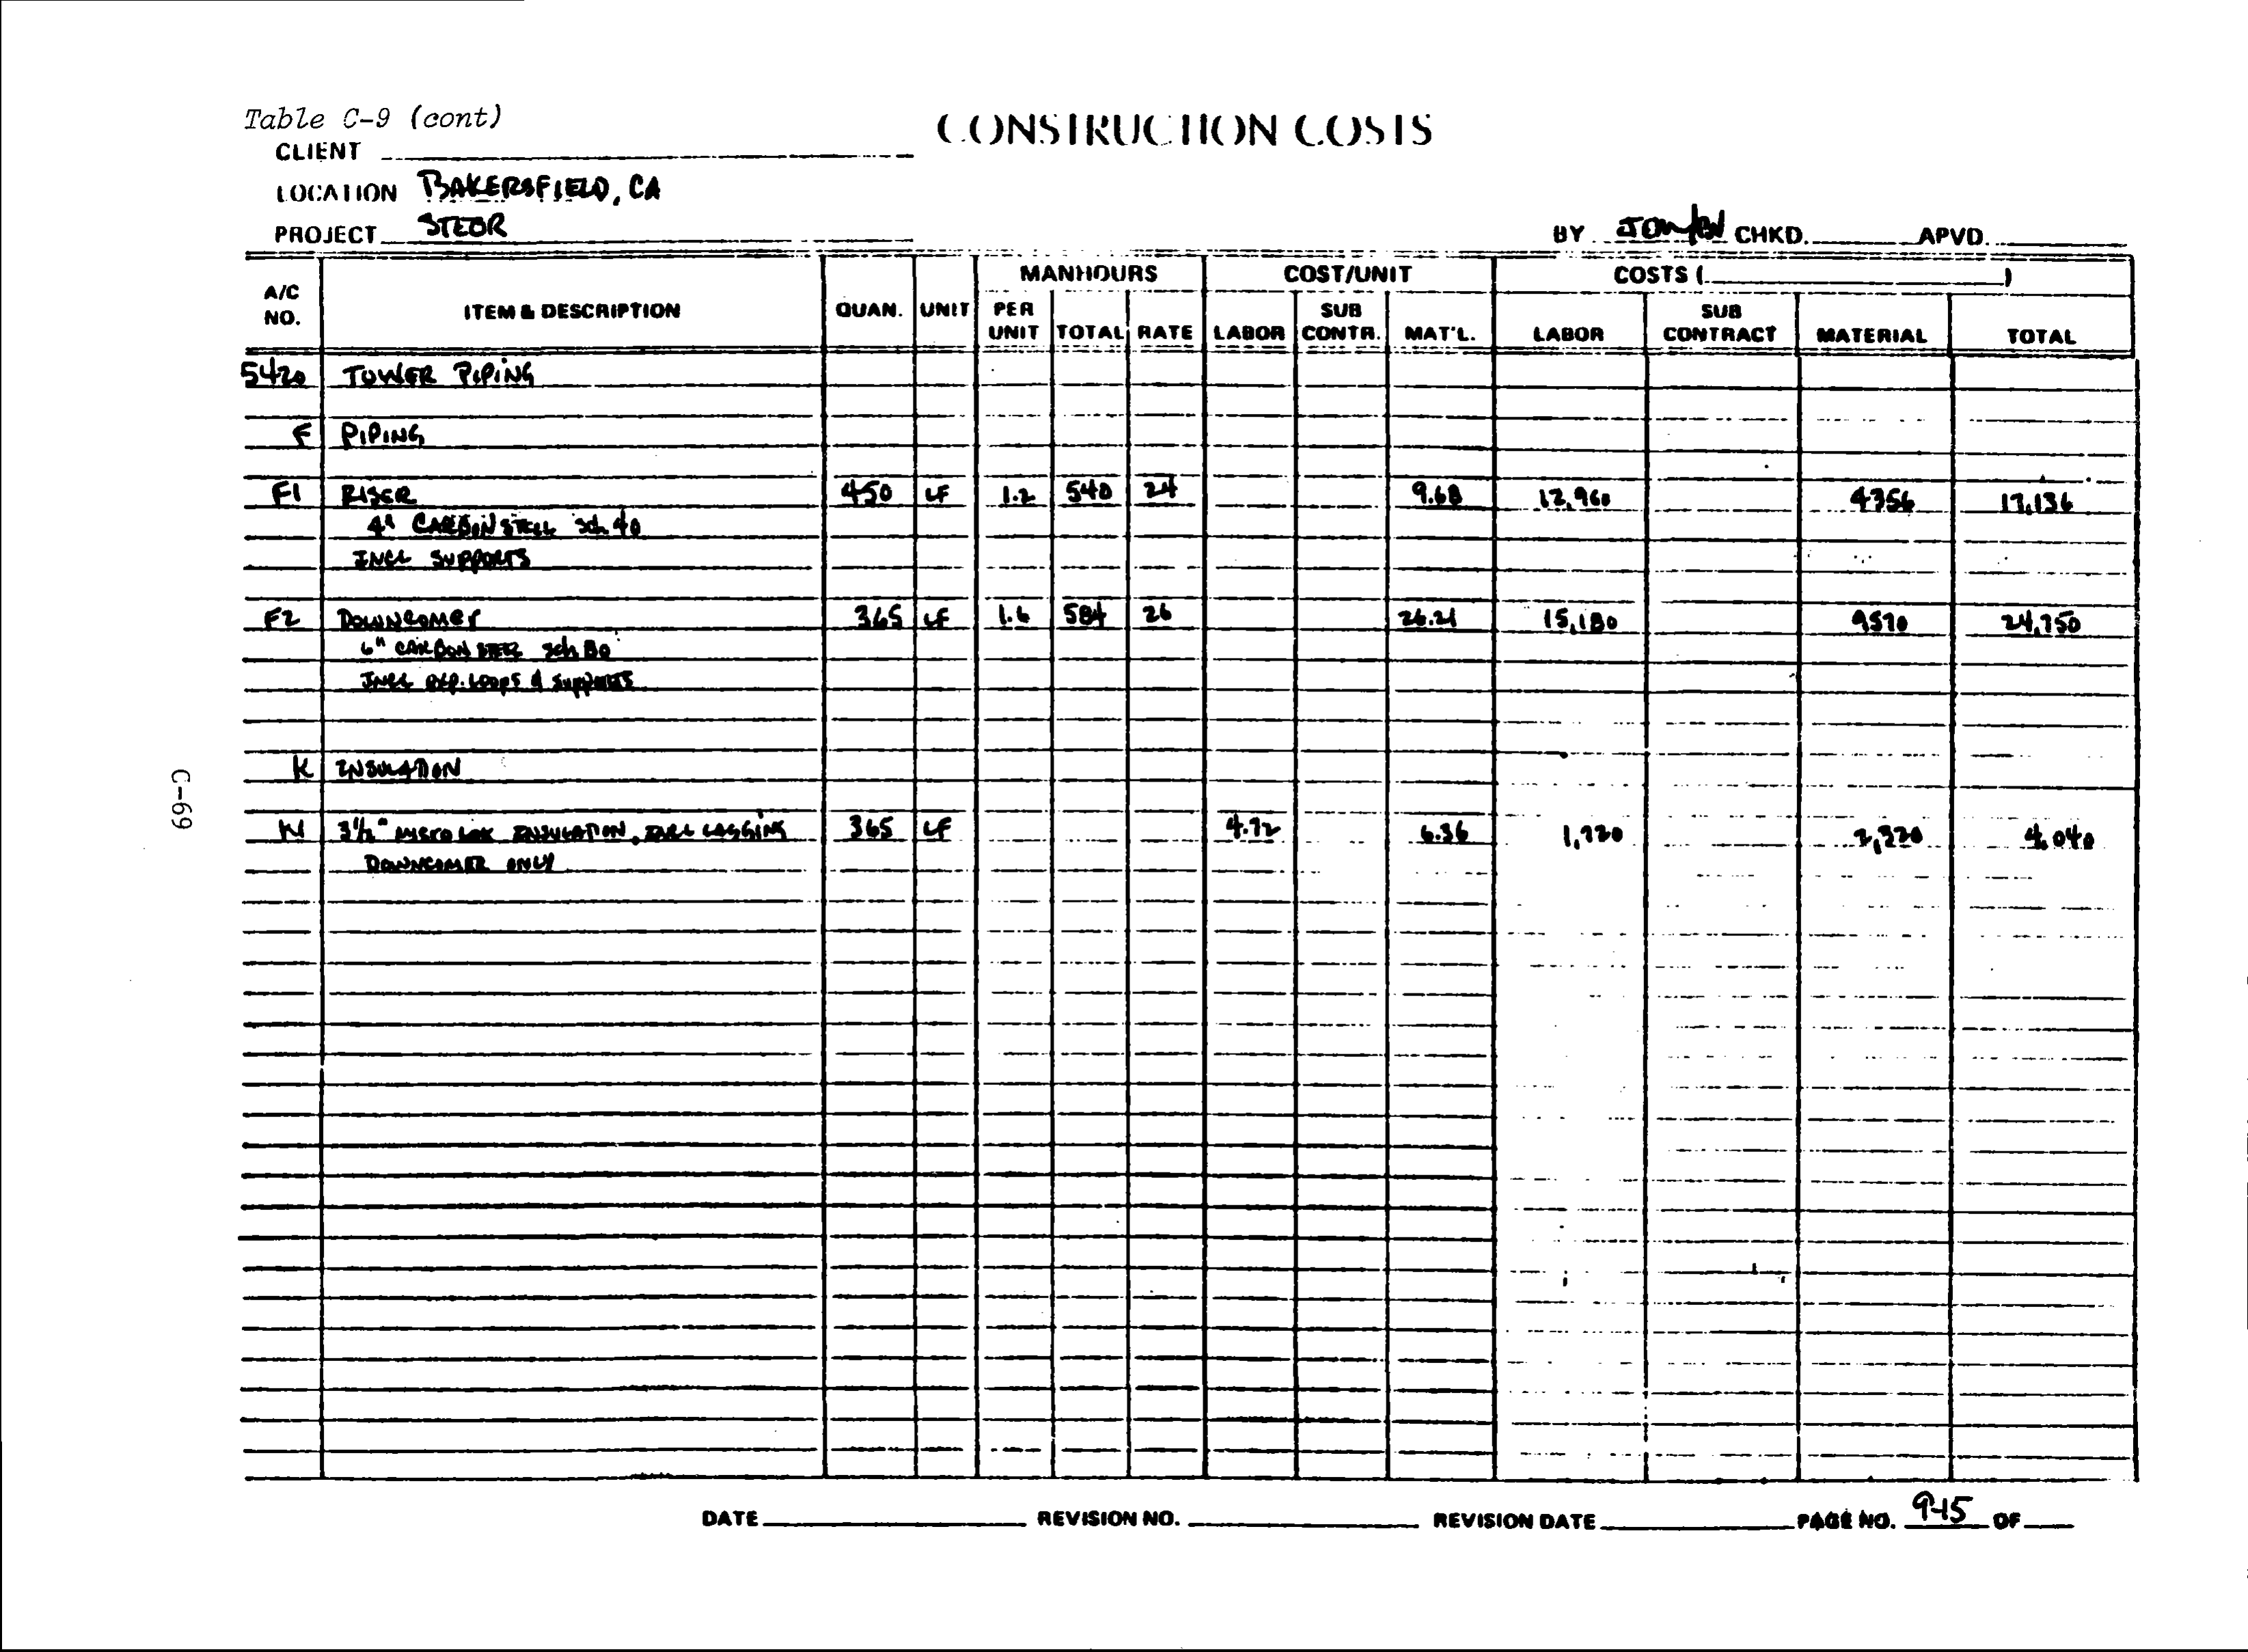 Table C-9 (cont)
CONSTRUCTION COSTS
CLIENT
LOCATION BAKERSFIELD, CA
PROJECT STEOR
BY CHKD. APVD.
A/C NO. ITEM & DESCRIPTION QUAN. UNIT MANHOURS PER UNIT TOTAL RATE COST/UNIT LABOR SUB CONTR. MAT'L. COSTS ( ) LABOR SUB CONTRACT MATERIAL TOTAL
5420 TOWER PIPING
F PIPING
F1 RISER 450 LF 1.2 540 24 9.68 12,960 4356 17,136
4" CARBON STEEL Sch 40
INCL SUPPORTS
F2 DOWNCOMER 365 LF 1.6 584 26 26.21 15,180 9570 24,750
6" CARBON STEEL Sch 80
INCL EXP. LOOPS & SUPPORTS
K INSULATION
K1 3 1/2" MICRO LOK INSULATION, LAGGING 365 LF 4.72 6.36 1,720 2,320 4,040
DOWNCOMER ONLY
C-69
DATE REVISION NO. REVISION DATE PAGE NO. 9-15 OF